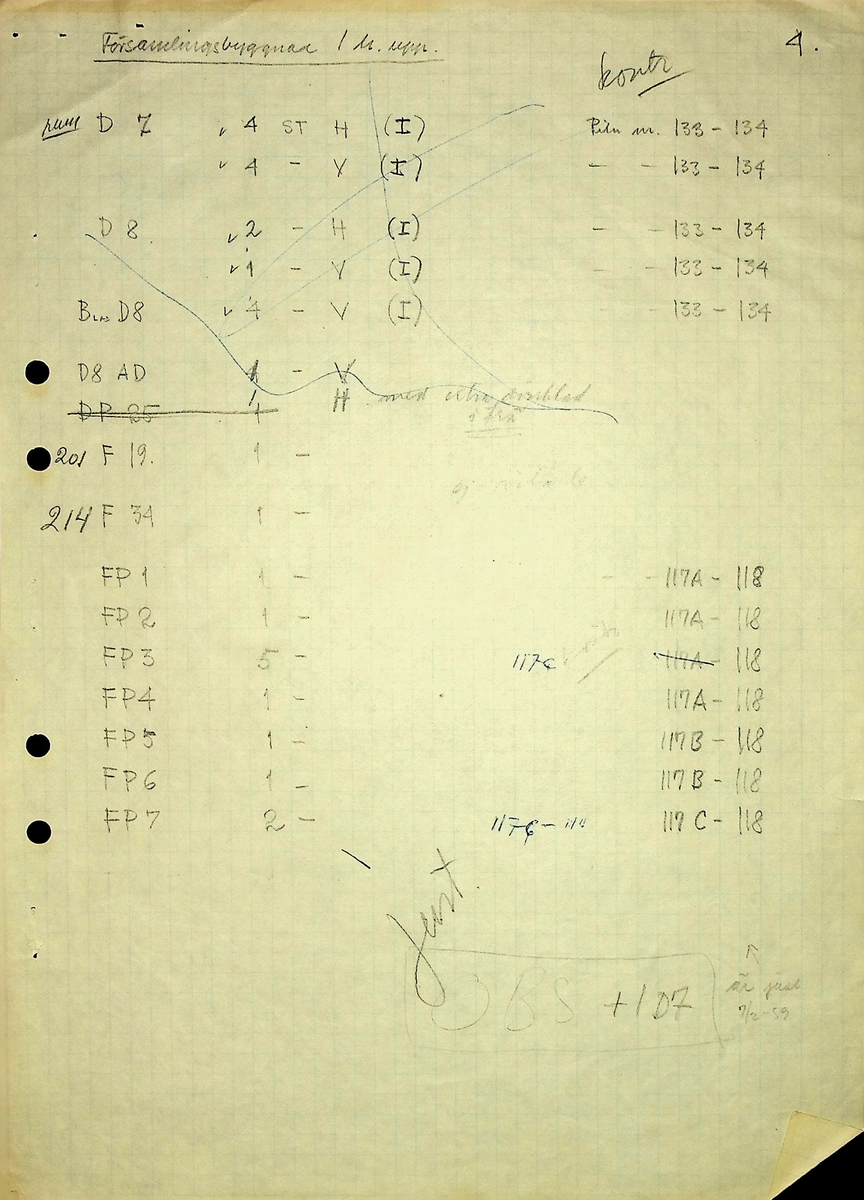 Församlingsbyggnad 1 tr. upp. 4.
kontr
D 7 ✓ 4 ST H (I) Ritn nr. 133 - 134
✓ 4 - V (I) - - 133 - 134
D 8. ✓ 2 - H (I) - - 133 - 134
✓ 1 - V (I) - - 133 - 134
D8 ✓ 4 - V (I) - 133 - 134
D8 AD 1 - V
DP 25 1 H med extra
201 F 19. 1 -
ej
214 F 34 1 -
FP 1 1 - - - 117A - 118
FP 2 1 - 117A - 118
FP 3 5 - 117C 117A - 118
FP 4 1 - 117A - 118
FP 5 1 - 117B - 118
FP 6 1 - 117B - 118
FP 7 2 - 117C - 118 117 C - 118
just.
OBS + 1 D7
är just
9/2-59